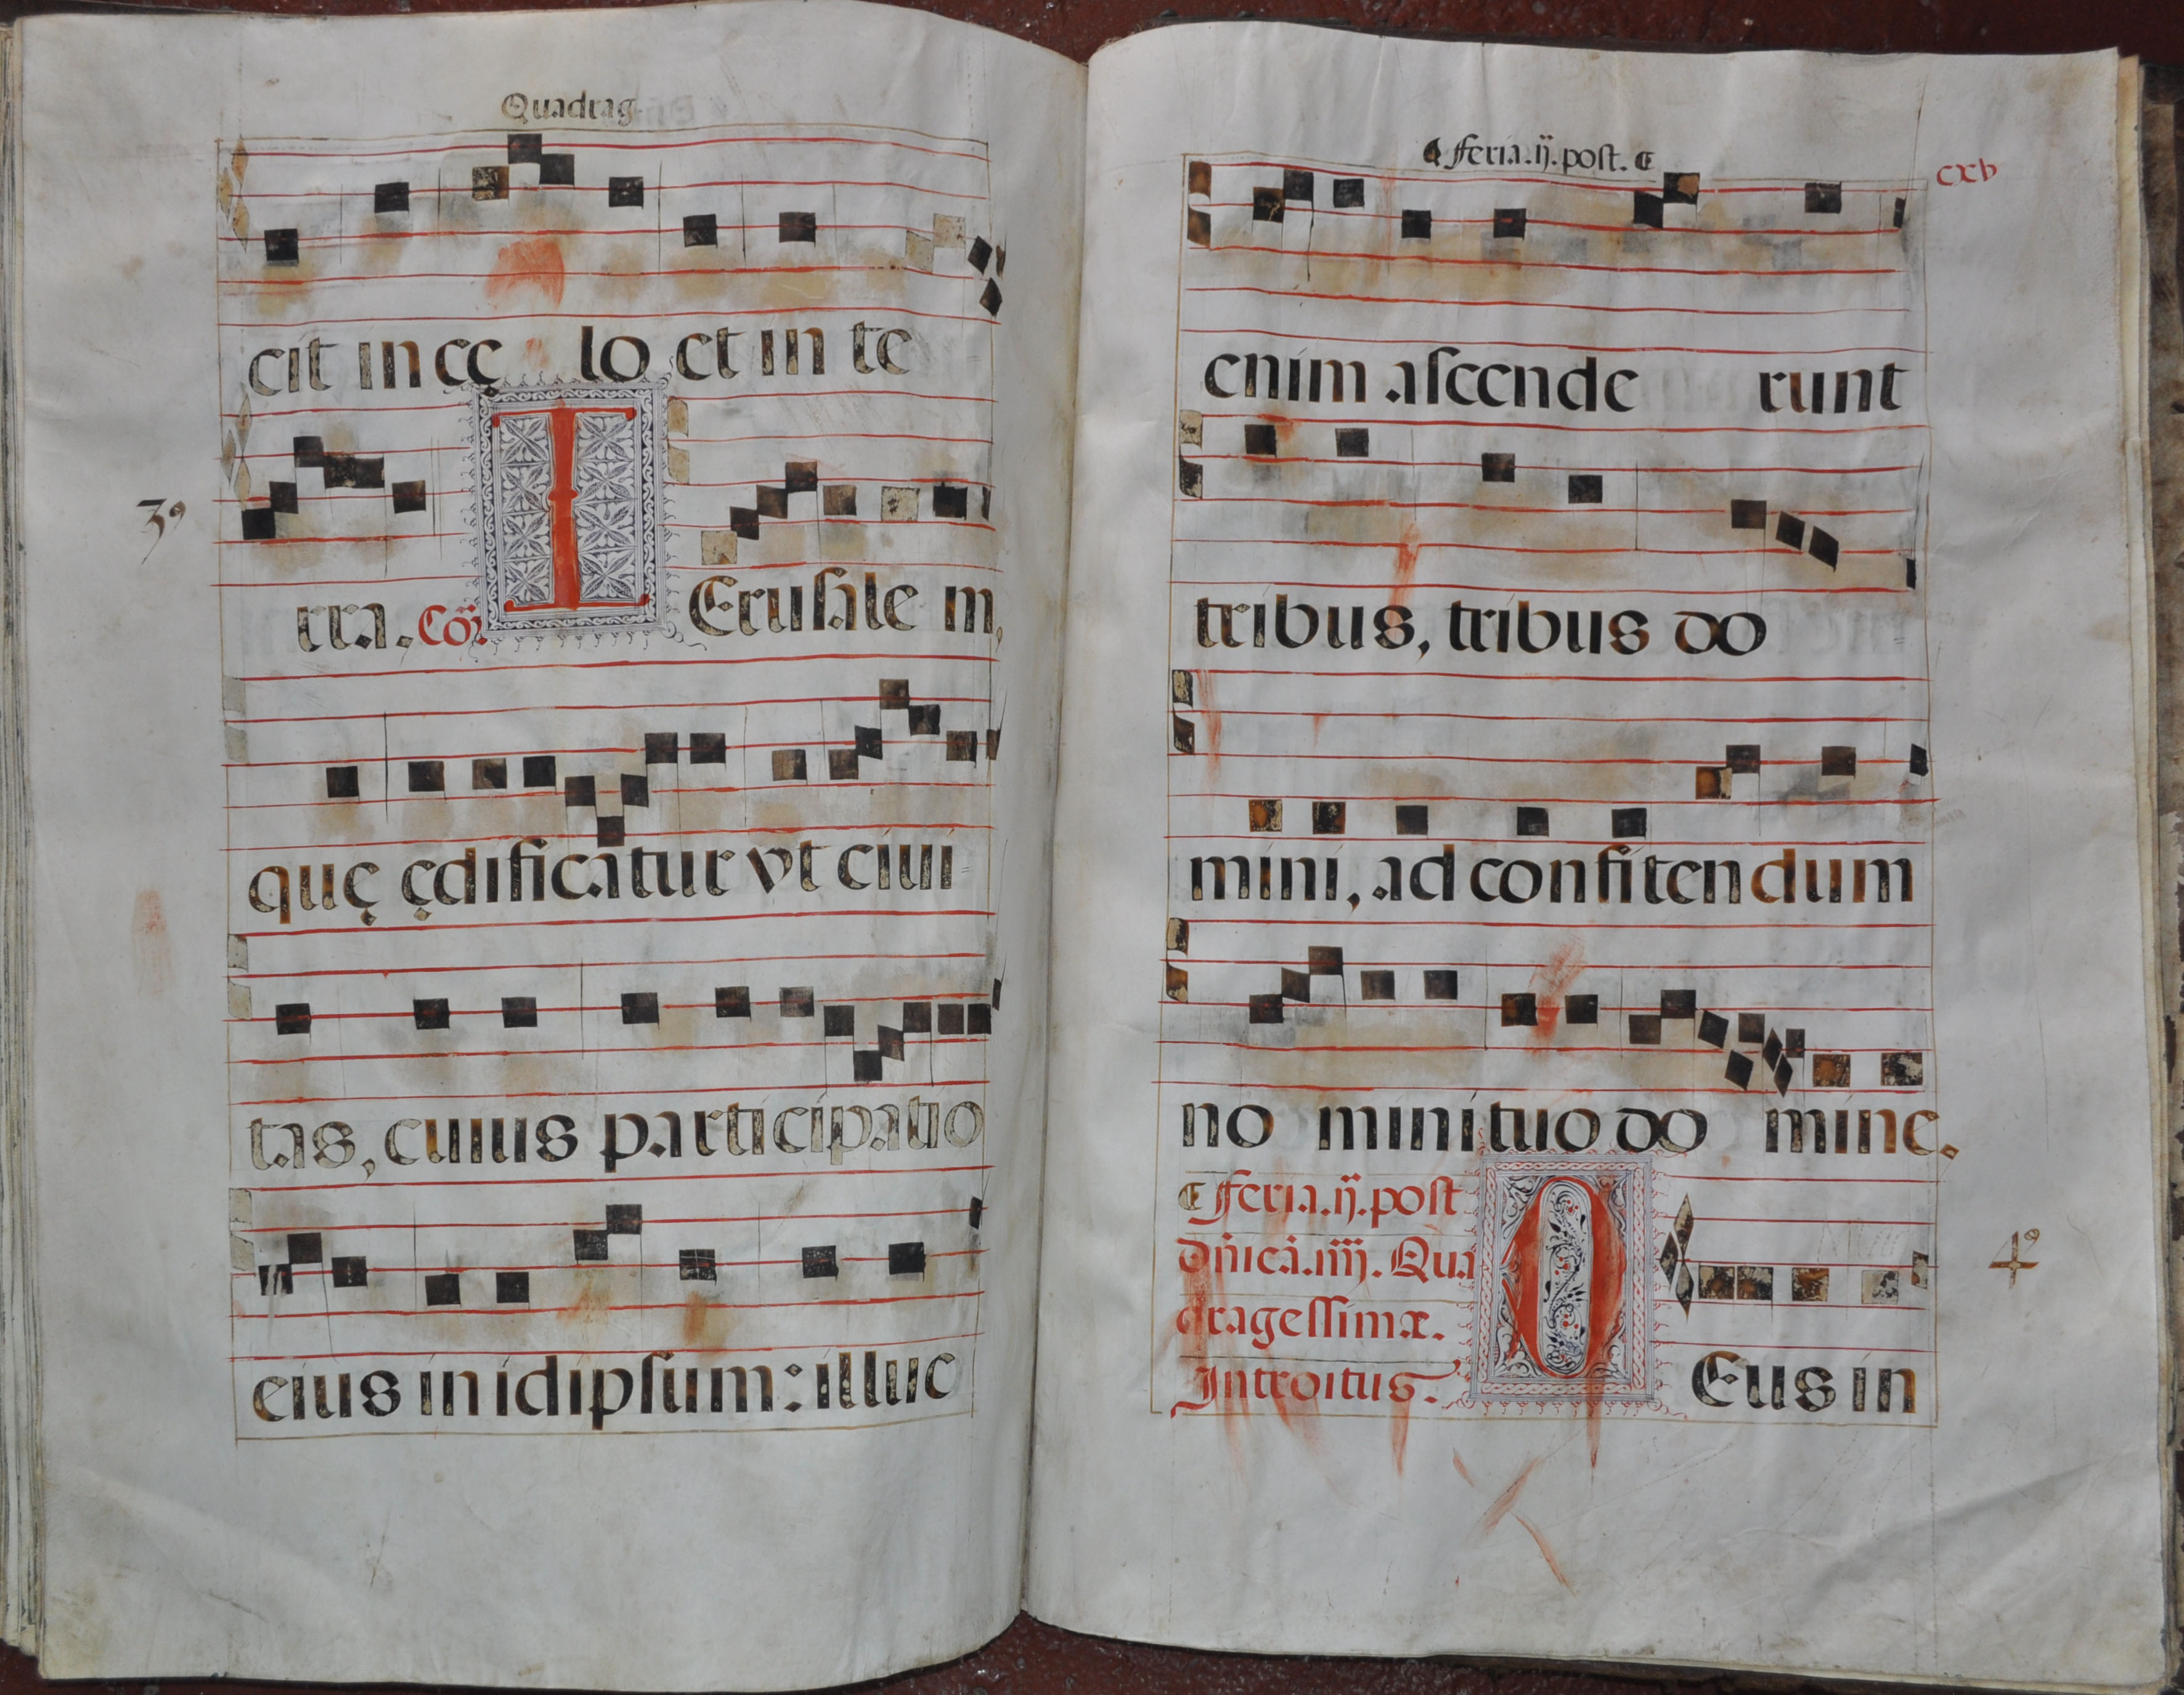 Quadrag
cit in cę lo et in te
rra. Cō⁊. I Erusale m,
3º
quę ędificatur vt ciui=
tas, cuius participatio
eius in idipsum: illuc
feria.ij.post.
cxv
enim ascende runt
tribus, tribus do=
mini, ad confitendum
no mini tuo do mine.
feria.ij.post
dñicã.iiij.Qua
dragessimæ.
Introitus. D Eus in
4º